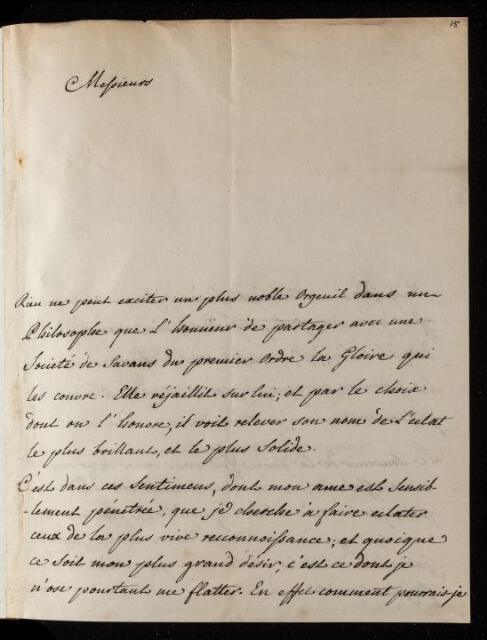 15
Messieurs
Rien ne peut exciter un plus noble Orgeuil dans un
Philosophe que L'honneur de partager avec une
Societé de Savans du premier Ordre la Gloire qui
les couvre. Elle réjaillit sur lui; et par le choix
dont on l'honore, il voit relever son nom de L'eclat
le plus brillant, et le plus Solide.
C'est dans ces Sentimens, dont mon ame est Sensib-
-lement pénétrée, que je cherche à faire eclater
ceux de la plus vive reconnoissance; et quoique
ce soit mon plus grand désir, c'est ce dont je
n'ose pourtant me flatter. En effet comment pourrais-je